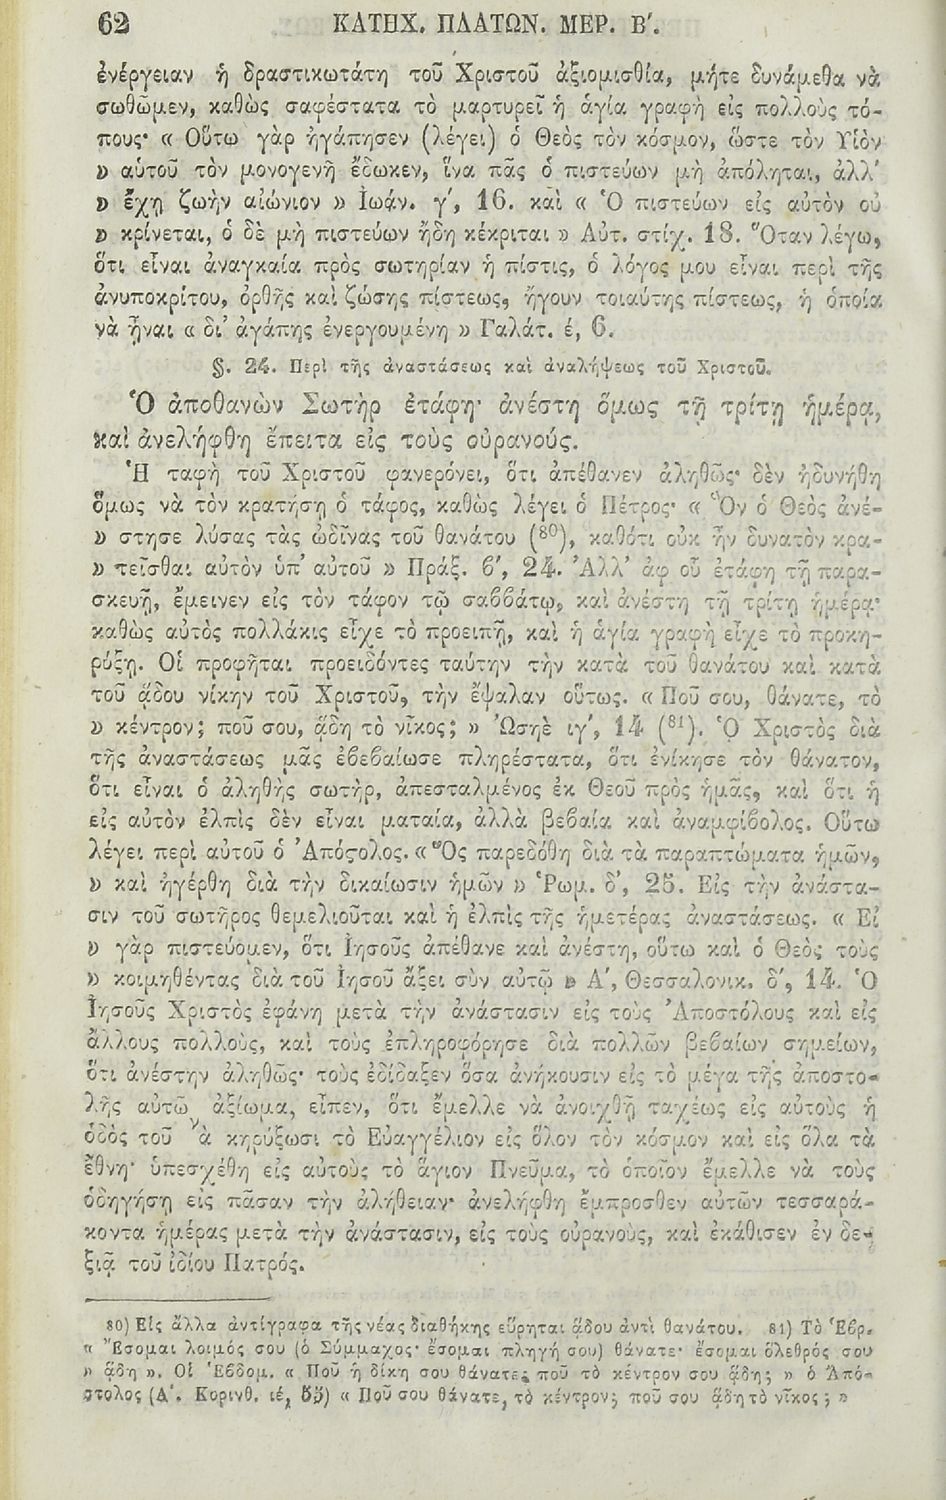 62 ΚΑΤΗΧ. ΠΛΑΤΩΝ. ΜΕΡ. Β΄.
ἐνέργειαν ἡ δραστικωτάτη τοῦ Χριστοῦ ἀξιομισθία, μήτε δυνάμεθα νὰ
σωθῶμεν, καθὼς σαφέστατα τὸ μαρτυρεῖ ἡ ἁγία γραφὴ εἰς πολλοὺς τό-
πους· « Οὕτω γὰρ ἠγάπησεν (λέγει) ὁ Θεὸς τὸν κόσμον, ὥστε τὸν Υἱὸν
» αὑτοῦ τὸν μονογενῆ ἔδωκεν, ἵνα πᾶς ὁ πιστεύων μὴ ἀπόληται, ἀλλ'
» ἔχῃ ζωὴν αἰώνιον » Ἰωάν. γ΄, 16. καὶ « Ὁ πιστεύων εἰς αὐτὸν οὐ
» κρίνεται, ὁ δὲ μὴ πιστεύων ἤδη κέκριται » Αὐτ. στίχ. 18. Ὅταν λέγω,
ὅτι εἶναι ἀναγκαία πρὸς σωτηρίαν ἡ πίστις, ὁ λόγος μου εἶναι περὶ τῆς
ἀνυποκρίτου, ὀρθῆς καὶ ζώσης πίστεως, ἤγουν τοιαύτης πίστεως, ἡ ὁποία
νὰ ᾖναι « δι' ἀγάπης ἐνεργουμένη » Γαλάτ. έ, 6.
§. 24. Περὶ τῆς ἀναστάσεως καὶ ἀναλήψεως τοῦ Χριστοῦ.
Ὁ ἀποθανὼν Σωτὴρ ἐτάφη· ἀνέστη ὅμως τῇ τρίτῃ ἡμέρᾳ,
καὶ ἀνελήφθη ἔπειτα εἰς τοὺς οὐρανούς.
Ἡ ταφὴ τοῦ Χριστοῦ φανερόνει, ὅτι ἀπέθανεν ἀληθῶς· δὲν ἠδυνήθη
ὅμως νὰ τὸν κρατήσῃ ὁ τάφος, καθὼς λέγει ὁ Πέτρος· « Ὃν ὁ Θεὸς ἀνέ-
» στησε λύσας τὰς ὠδῖνας τοῦ θανάτου (⁸⁰), καθότι οὐκ ἦν δυνατὸν κρα-
» τεῖσθαι αὐτὸν ὑπ' αὐτοῦ » Πράξ. β΄, 24. Ἀλλ' ἀφ οὗ ἐτάφη τῇ παρα-
σκευῇ, ἔμεινεν εἰς τὸν τάφον τῷ σαββάτῳ, καὶ ἀνέστη τῇ τρίτῃ ἡμέρᾳ·
καθὼς αὐτὸς πολλάκις εἶχε τὸ προειπῇ, καὶ ἡ ἁγία γραφὴ εἶχε τὸ προκη-
ρύξῃ. Οἱ προφῆται προειδόντες ταύτην τὴν κατὰ τοῦ θανάτου καὶ κατὰ
τοῦ ᾅδου νίκην τοῦ Χριστοῦ, τὴν ἔψαλαν οὕτως. « Ποῦ σου, θάνατε, τὸ
» κέντρον; ποῦ σου, ᾅδη τὸ νῖκος; » Ὡσηὲ ιγ΄, 14 (⁸¹). Ὁ Χριστὸς διὰ
τῆς ἀναστάσεως μᾶς ἐβεβαίωσε πληρέστατα, ὅτι ἐνίκησε τὸν θάνατον,
ὅτι εἶναι ὁ ἀληθὴς σωτὴρ, ἀπεσταλμένος ἐκ Θεοῦ πρὸς ἡμᾶς, καὶ ὅτι ἡ
εἰς αὐτὸν ἐλπὶς δὲν εἶναι ματαία, ἀλλὰ βεβαία καὶ ἀναμφίβολος. Οὕτω
λέγει περὶ αὐτοῦ ὁ Ἀπόϛολος. « Ὃς παρεδόθη διὰ τὰ παραπτώματα ἡμῶν,
» καὶ ἠγέρθη διὰ τὴν δικαίωσιν ἡμῶν » Ῥωμ. δ΄, 25. Εἰς τὴν ἀνάστα-
σιν τοῦ σωτῆρος θεμελιοῦται καὶ ἡ ἐλπὶς τῆς ἡμετέρας ἀναστάσεως. « Εἰ
» γὰρ πιστεύομεν, ὅτι Ἰησοῦς ἀπέθανε καὶ ἀνέστη, οὕτω καὶ ὁ Θεὸς τοὺς
» κοιμηθέντας διὰ τοῦ Ἰησοῦ ἄξει σὺν αὐτῷ » Α΄, Θεσσαλονικ. δ΄, 14. Ὁ
Ἰησοῦς Χριστὸς ἐφάνη μετὰ τὴν ἀνάστασιν εἰς τοὺς Ἀποστόλους καὶ εἰς
ἄλλους πολλοὺς, καὶ τοὺς ἐπληροφόρησε διὰ πολλῶν βεβαίων σημείων,
ὅτι ἀνέστην ἀληθῶς· τοὺς ἐδίδαξεν ὅσα ἀνήκουσιν εἰς τὸ μέγα τῆς ἀποστο-
λῆς αὐτῶ ἀξίωμα, εἶπεν, ὅτι ἔμελλε νὰ ἀνοιχθῇ ταχέως εἰς αὐτοὺς ἡ
ὁδὸς τοῦ νὰ κηρύξωσι τὸ Εὐαγγέλιον εἰς ὅλον τὸν κόσμον καὶ εἰς ὅλα τὰ
ἔθνη· ὑπεσχέθη εἰς αὐτοὺς τὸ ἅγιον Πνεῦμα, τὸ ὁποῖον ἔμελλε νὰ τοὺς
ὁδηγήσῃ εἰς πᾶσαν τὴν ἀλήθειαν· ἀνελήφθη ἔμπροσθεν αὐτῶν τεσσαρά-
κοντα ἡμέρας μετὰ τὴν ἀνάστασιν, εἰς τοὺς οὐρανοὺς, καὶ ἐκάθισεν ἐν δε-
ξιᾷ τοῦ ἰδίου Πατρός.
80) Εἰς ἄλλα ἀντίγραφα τῆς νέας διαθήκης εὕρηται ᾅδου ἀντὶ θανάτου. 81) Τὸ Ἑβρ.
« Ἔσομαι λοιμός σου (ὁ Σύμμαχος· ἔσομαι πληγή σου) θάνατε· ἔσομαι ὄλεθρός σου
» ᾅδη ». Οἱ Ἑβδομ. « Ποῦ ἡ δίκη σου θάνατε; ποῦ τὸ κέντρον σου ᾅδη; » ὁ Ἀπό-
στολος (Α΄. Κορινθ. ιέ, 55) « Ποῦ σου θάνατε, τὸ κέντρον; ποῦ σου ᾅδη τὸ νῖκος; »